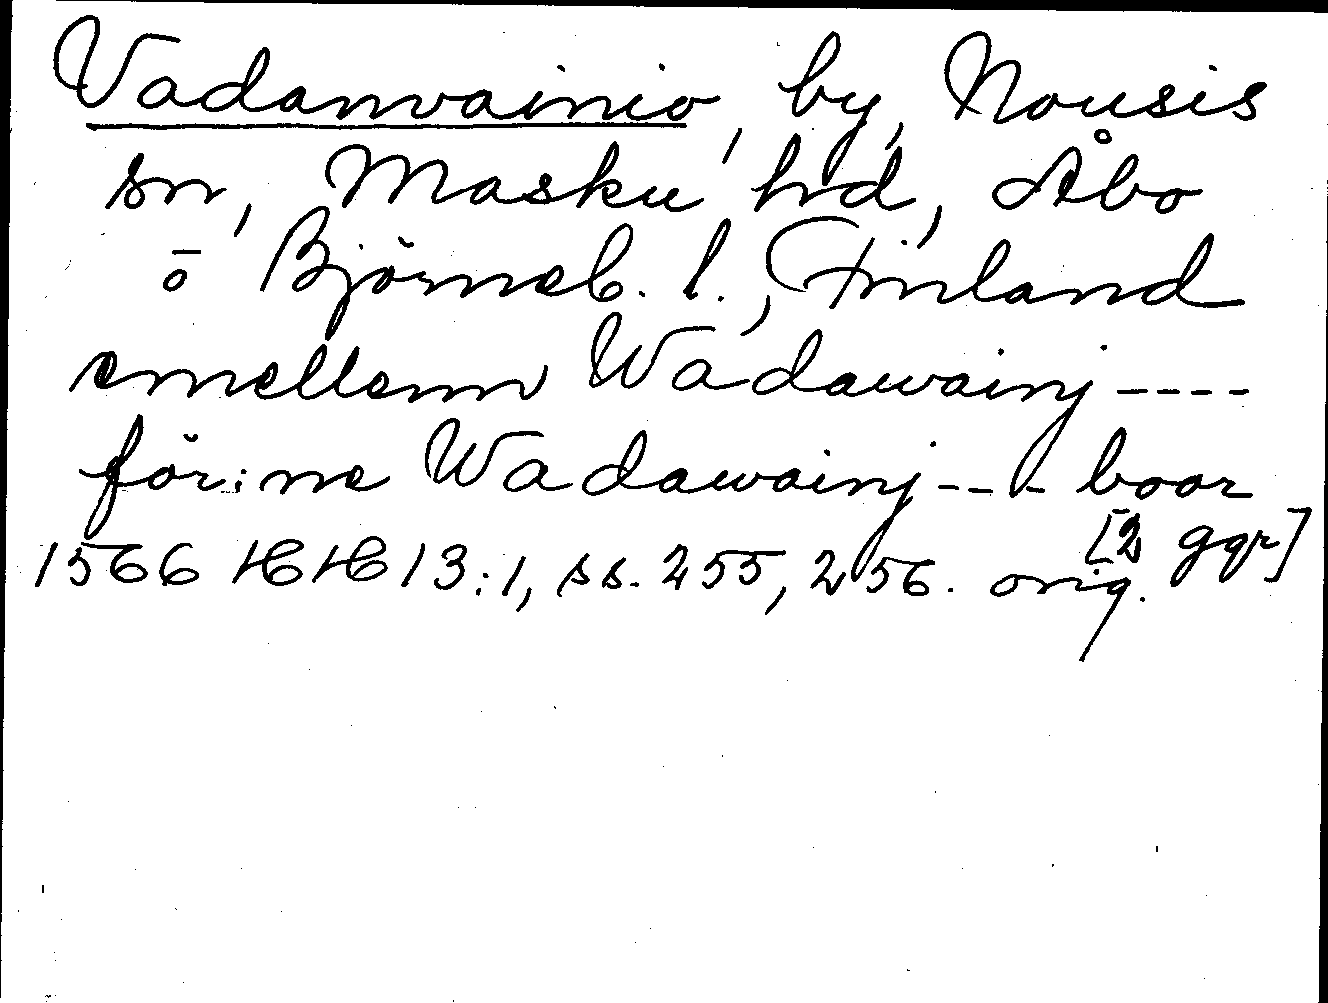 Vadanvainio, by, Nousis
sn, Masku hd, Åbo
o Björneb. l., Finland
emellenn Wadawainj ----
för:ne Wadawainj --- boor
[2 ggr]
1566 HH 13:1, ss. 255, 256. orig.